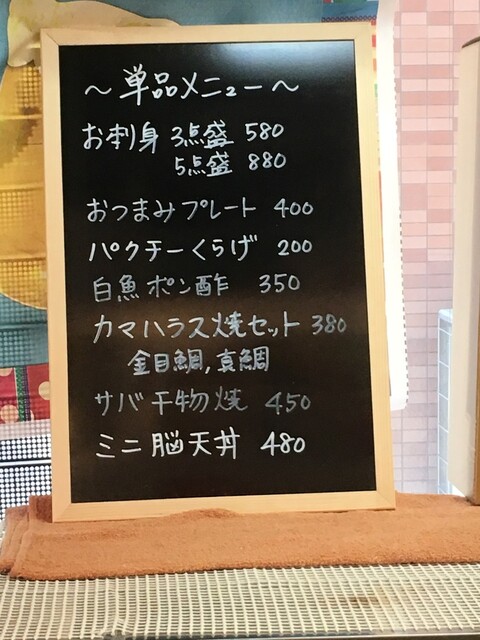 ～単品メニュー～
お刺身 3点盛 580
5点盛 880
おつまみプレート 400
パクチーくらげ 200
白魚ポン酢 350
カマハラス焼セット 380
金目鯛,真鯛
サバ干物焼 450
ミニ脳天丼 480